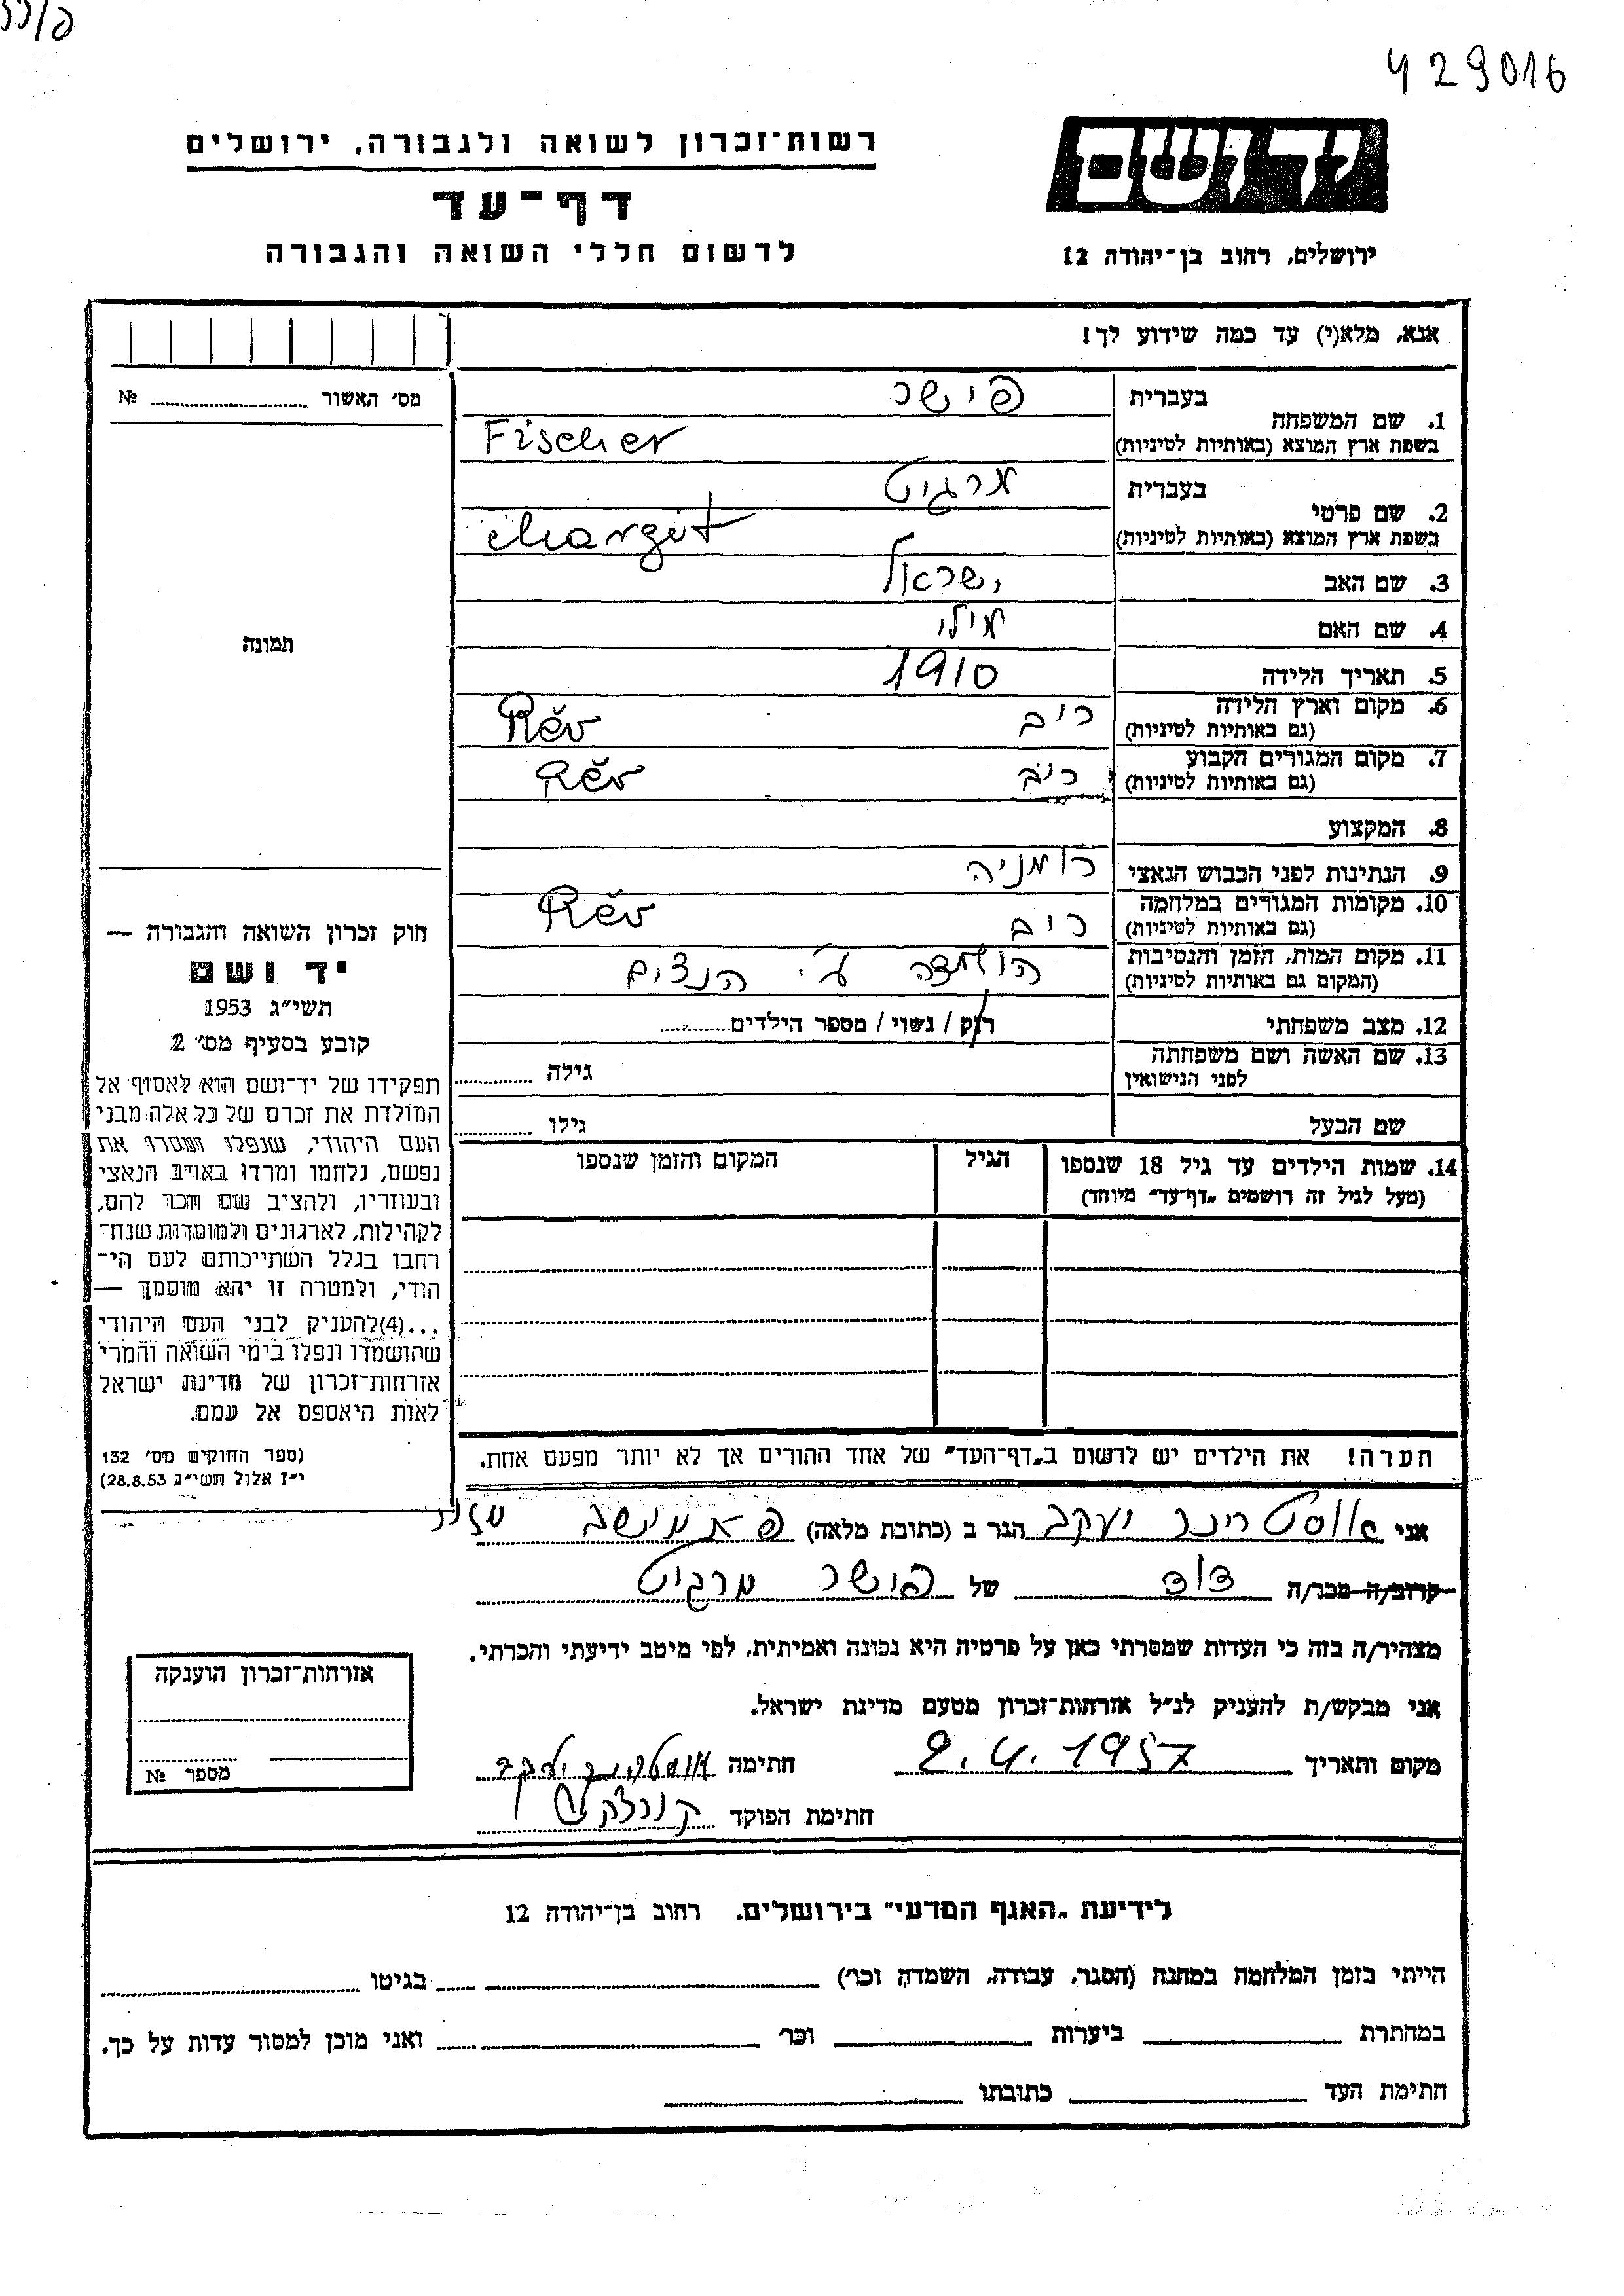 429016
יד ושם
ירושלים, רחוב בן־יהודה 12
רשות־זכרון לשואה ולגבורה, ירושלים
דף־עד
לרשום חללי השואה והגבורה
אנא, מלא(י) עד כמה שידוע לך!
מס׳ האשור № ....................
1. שם המשפחה
בעברית פישר
בשפת ארץ המוצא (באותיות לטיניות) Fischer
2. שם פרטי
בעברית מרגיט
בשפת ארץ המוצא (באותיות לטיניות) Margit
3. שם האב ישראל
4. שם האם מילי
5. תאריך הלידה 1910
6. מקום וארץ הלידה
(גם באותיות לטיניות) ריב Rév
7. מקום המגורים הקבוע
(גם באותיות לטיניות) ריב Rév
8. המקצוע
9. הנתינות לפני הכבוש הנאצי רומניה
10. מקומות המגורים במלחמה
(גם באותיות לטיניות) ריב Rév
11. מקום המות, הזמן והנסיבות
(המקום גם באותיות לטיניות) הושמדה ע״י הנצים
12. מצב משפחתי רוק / נשוי / מספר הילדים..........
13. שם האשה ושם משפחתה
לפני הנישואין גילה ..........
שם הבעל גילו ..........
14. שמות הילדים עד גיל 18 שנספו
(מעל לגיל זה רושמים „דף־עד״ מיוחד)
הגיל
המקום והזמן שנספו
תמונה
חוק זכרון השואה והגבורה —
יד ושם
תשי״ג 1953
קובע בסעיף מס׳ 2
תפקידו של יד־ושם הוא לאסוף אל
המולדת את זכרם של כל אלה מבני
העם היהודי, שנפלו ומסרו את
נפשם, נלחמו ומרדו באויב הנאצי
ובעוזריו, ולהציב שם וזכר להם,
לקהילות, לארגונים ולמוסדות שנח־
רחבו בגלל השתייכותם לעם הי־
הודי, ולמטרה זו יהא מוסמך —
...(4)להעניק לבני העם היהודי
שהושמדו ונפלו בימי השואה והמרי
אזרחות־זכרון של מדינת ישראל
לאות היאספם אל עמם.
(ספר החוקים מס׳ 132
י״ז אלול תשי״ג 28.8.53)
הערה! את הילדים יש לרשום ב„דף־העד״ של אחד ההורים אך לא יותר מפעם אחת.
אני יעקב הגר ב (כתובת מלאה)
קרוב/ה מכר/ה דוד של פישר מרגיט
מצהיר/ה בזה כי העדות שמסרתי כאן על פרטיה היא נכונה ואמיתית, לפי מיטב ידיעתי והכרתי.
אני מבקש/ת להעניק לנ״ל אזרחות־זכרון מטעם מדינת ישראל.
מקום ותאריך 2.4.1957 חתימה
חתימת הפוקד
אזרחות־זכרון הוענקה
מספר №
לידיעת „האגף המדעי״ בירושלים. רחוב בן־יהודה 12
הייתי בזמן המלחמה במחנה (הסגר, עבודה, השמדה וכו׳) בגיטו
במחתרת ביערות וכו׳ ואני מוכן למסור עדות על כך.
חתימת העד כתובתו